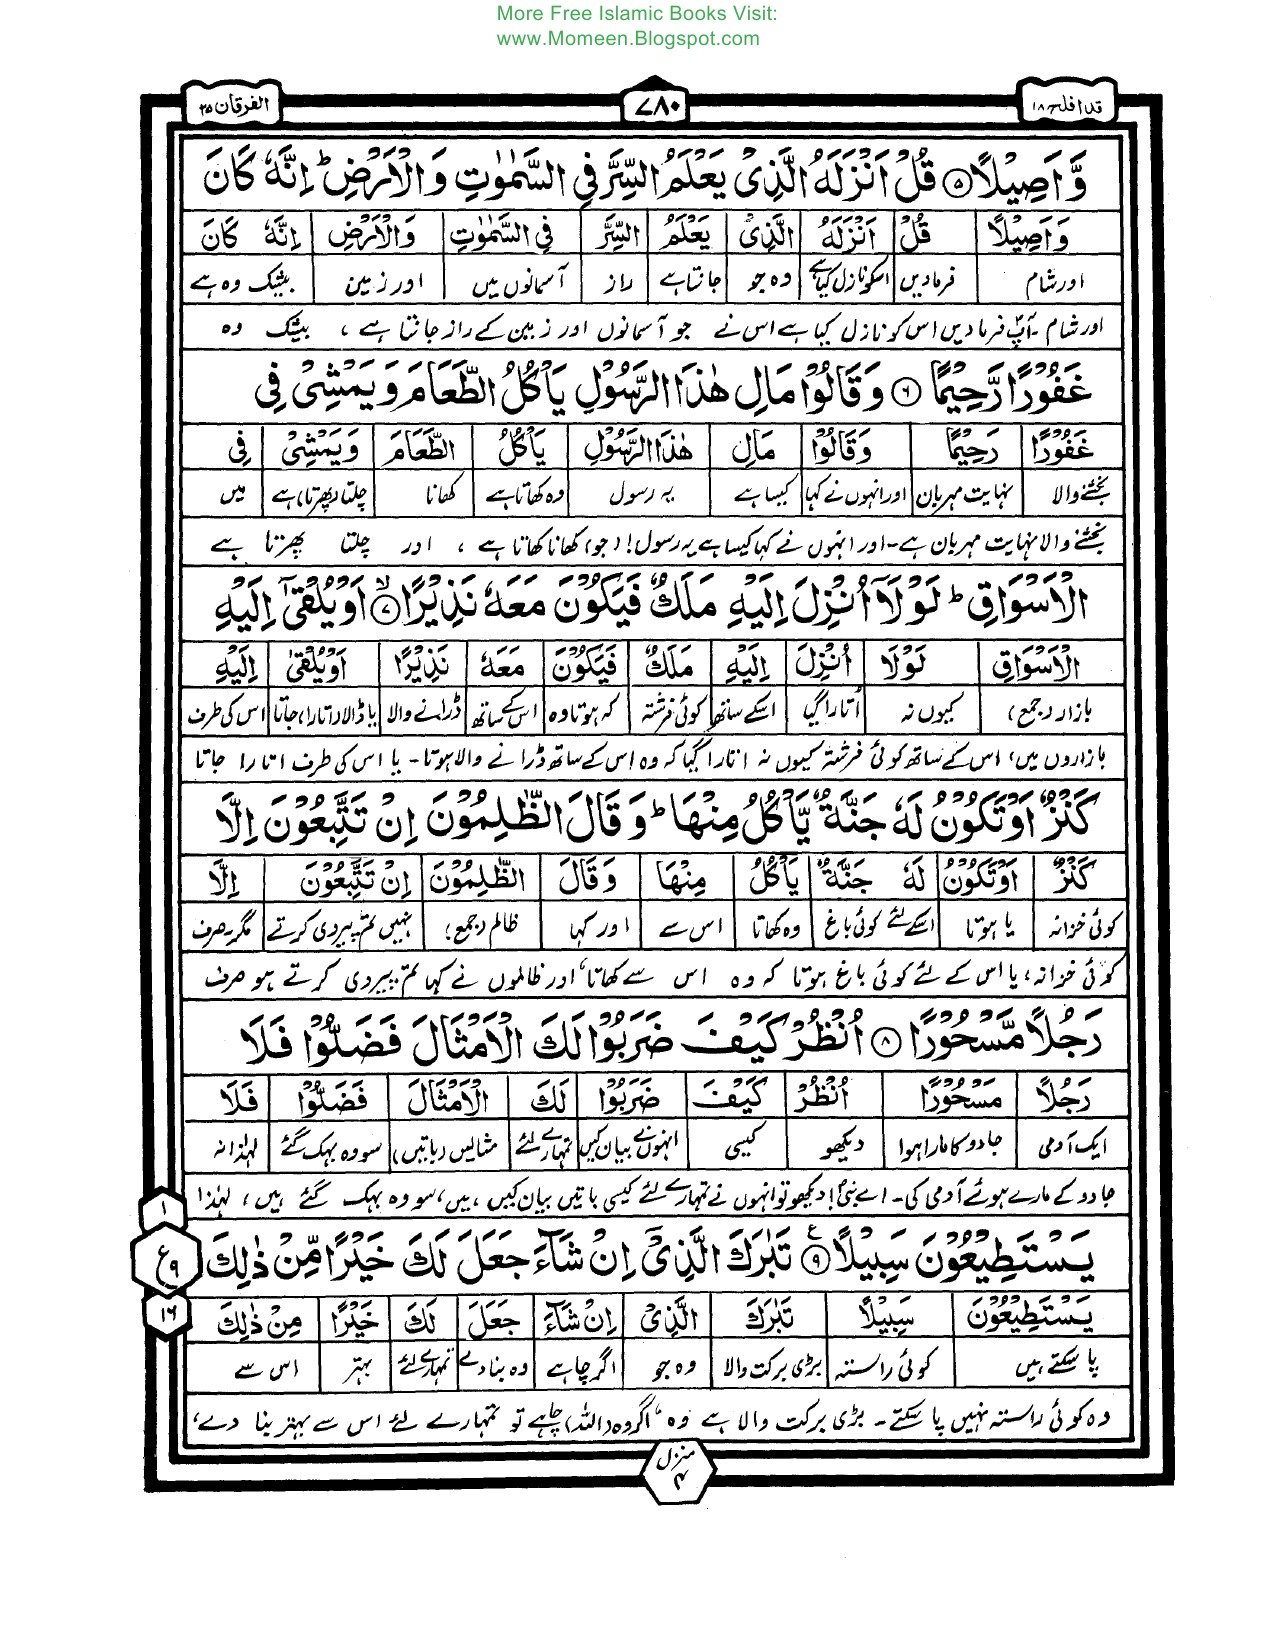 More Free Islamic Books Visit:
www.Momeen.Blogspot.com
قد افلح ۱۸
۷۸۰
الفرقان ۲۵
وَّاَصِيْلًا ۵ قُلْ اَنْزَلَهُ الَّذِيْ يَعْلَمُ السِّرَّ فِي السَّمٰوٰتِ وَالْاَرْضِ ؕ اِنَّهٗ كَانَ
وَاَصِيْلًا قُلْ اَنْزَلَهُ الَّذِيْ يَعْلَمُ السِّرَّ فِي السَّمٰوٰتِ وَالْاَرْضِ اِنَّهٗ كَانَ
اور شام فرمادیں اسکو نازل کیا ہے وہ جو جانتا ہے راز آسمانوں میں اور زمین بیشک وہ ہے
اور شام ۔ آپؐ فرما دیں اس کو نازل کیا ہے اس نے جو آسمانوں اور زمین کے راز جانتا ہے ، بیشک وہ
غَفُوْرًا رَّحِيْمًا ۶ وَقَالُوْا مَالِ هٰذَا الرَّسُوْلِ يَاْكُلُ الطَّعَامَ وَيَمْشِيْ فِي
غَفُوْرًا رَحِيْمًا وَقَالُوْا مَالِ هٰذَا الرَّسُوْلِ يَاْكُلُ الطَّعَامَ وَيَمْشِيْ فِي
بخشنے والا نہایت مہربان اور انہوں نے کہا کیسا ہے یہ رسول وہ کھاتا ہے کھانا چلتا (پھرتا) ہے میں
بخشنے والا نہایت مہربان ہے ۔ اور انہوں نے کہا کیسا ہے یہ رسول! (جو) کھانا کھاتا ہے ، اور چلتا پھرتا ہے
الْاَسْوَاقِ ؕ لَوْلَاۤ اُنْزِلَ اِلَيْهِ مَلَكٌ فَيَكُوْنَ مَعَهٗ نَذِيْرًا ۙ۷ اَوْ يُلْقٰۤى اِلَيْهِ
الْاَسْوَاقِ لَوْلَا اُنْزِلَ اِلَيْهِ مَلَكٌ فَيَكُوْنَ مَعَهٗ نَذِيْرًا اَوْ يُلْقٰى اِلَيْهِ
بازار (جمع) کیوں نہ اُتارا گیا اسکے ساتھ کوئی فرشتہ کہ ہوتا وہ اس کے ساتھ ڈرانے والا یا ڈالا (اتارا) جاتا اس کی طرف
بازاروں میں، اس کے ساتھ کوئی فرشتہ کیوں نہ اتارا گیا کہ وہ اس کے ساتھ ڈرانے والا ہوتا ۔ یا اس کی طرف اتارا جاتا
كَنْزٌ اَوْ تَكُوْنُ لَهٗ جَنَّةٌ يَّاْكُلُ مِنْهَا ؕ وَقَالَ الظّٰلِمُوْنَ اِنْ تَتَّبِعُوْنَ اِلَّا
كَنْزٌ اَوْ تَكُوْنُ لَهٗ جَنَّةٌ يَاْكُلُ مِنْهَا وَقَالَ الظّٰلِمُوْنَ اِنْ تَتَّبِعُوْنَ اِلَّا
کوئی خزانہ یا ہوتا اسکے لئے کوئی باغ وہ کھاتا اس سے اور کہا ظالم (جمع) نہیں تم پیروی کرتے مگر ۔ صرف
کوئی خزانہ ، یا اس کے لئے کوئی باغ ہوتا کہ وہ اس سے کھاتا، اور ظالموں نے کہا تم پیروی کرتے ہو صرف
رَجُلًا مَّسْحُوْرًا ۸ اُنْظُرْ كَيْفَ ضَرَبُوْا لَكَ الْاَمْثَالَ فَضَلُّوْا فَلَا
رَجُلًا مَسْحُوْرًا اُنْظُرْ كَيْفَ ضَرَبُوْا لَكَ الْاَمْثَالَ فَضَلُّوْا فَلَا
ایک آدمی جادو کا مارا ہوا دیکھو کیسی انہوں نے بیان کیں تمہارے لئے مثالیں (باتیں) سو وہ بہک گئے لہٰذا نہ
جادو کے مارے ہوئے آدمی کی ۔ اے نبیؐ! دیکھو تو انہوں نے تمہارے لئے کیسی باتیں بیان کیں ہیں، سو وہ بہک گئے ہیں ، لہٰذا
يَسْتَطِيْعُوْنَ سَبِيْلًا ۹ تَبٰرَكَ الَّذِيْۤ اِنْ شَآءَ جَعَلَ لَكَ خَيْرًا مِّنْ ذٰلِكَ
يَسْتَطِيْعُوْنَ سَبِيْلًا تَبٰرَكَ الَّذِيْ اِنْ شَآءَ جَعَلَ لَكَ خَيْرًا مِنْ ذٰلِكَ
پا سکتے ہیں کوئی راستہ بڑی برکت والا وہ جو اگر چاہے وہ بنا دے تمہارے لئے بہتر اس سے
وہ کوئی راستہ نہیں پا سکتے ۔ بڑی برکت والا ہے وہ، اگر وہ (اللہ) چاہے تو تمہارے لئے اس سے بہتر بنا دے ،
۱
ع ۹
۱۶
منزل ۴